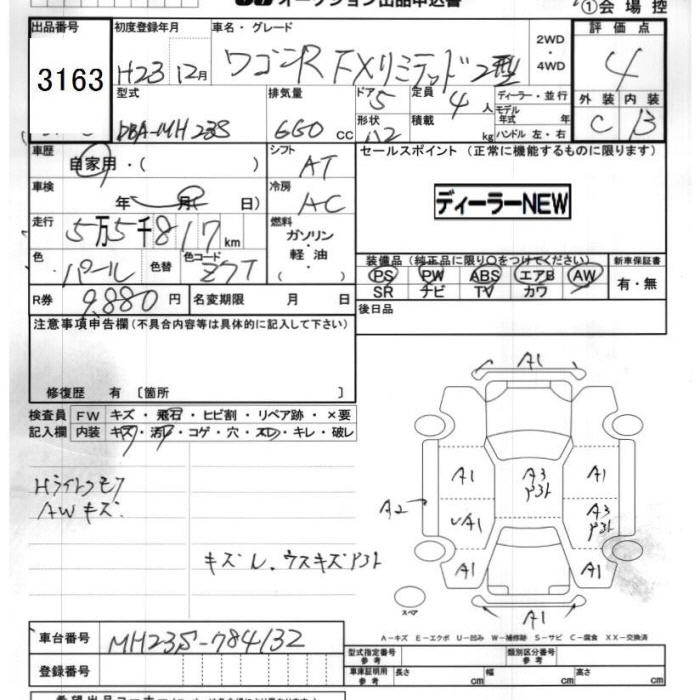 オークション出品申込書 ①会場控
出品番号 初度登録年月 車名・グレード 2WD・4WD 評価点
3163 H23 12月 ワゴンR FXリミテッド2型 4
型式 排気量 ドア 定員 ディーラー・並行 外装 内装
DBA-MH23S 660cc 5 4人 モデル年式 年 C B
形状 積載 kg ハンドル 左・右
車歴 自家用・( ) シフト AT セールスポイント (正常に機能するものに限ります)
車検 年 月( 日) 冷房 AC ディーラーNEW
走行 5万5千817km 燃料 ガソリン・軽油
色 パール 色替 色コード Z7T 装備品(純正品に限り○をつけてください) 新車保証書
PS PW ABS エアB AW 有・無
SR ナビ TV カワ
R券 9,880円 名変期限 月 日 後日品
注意事項申告欄(不具合内容等は具体的に記入して下さい)
修復歴 有〔箇所 〕
検査員記入欄 FW キズ・飛石・ヒビ割・リペア跡・×要
内装 キズ・汚レ・コゲ・穴・スレ・キレ・破レ
AWキズ
A1
A1 A3 A1
A2 A1 A3
A1 A1
A1
スペア
A-キズ E-エクボ U-凹み W-補修跡 S-サビ C-腐食 XX-交換済
車台番号 MH23S-784132
登録番号
型式指定番号 参考 類別区分番号 参考
車庫証明用 参考 長さ cm 幅 cm 高さ cm